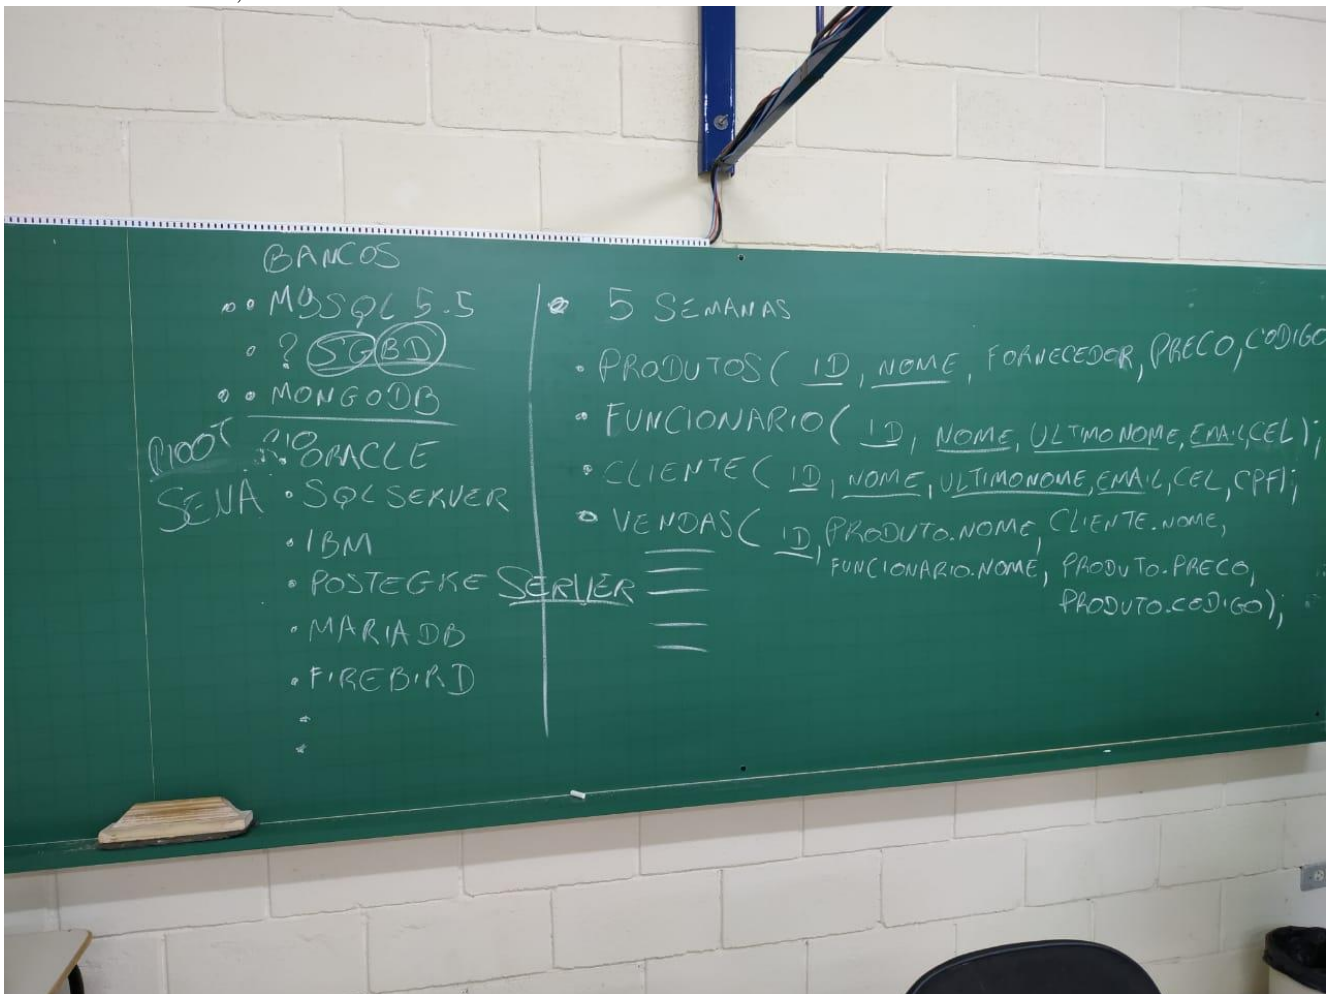 BANCOS
MYSQL 5.5
? SGBD
MONGODB
ROOT
ORACLE
SENA
SQL SERVER
IBM
POSTEGRE SERVER
MARIA DB
FIREBIRD
5 SEMANAS
PRODUTOS( ID, NOME, FORNECEDOR, PRECO, CODIGO
FUNCIONARIO( ID, NOME, ULTIMO NOME, EMAIL, CEL);
CLIENTE( ID, NOME, ULTIMONOME, EMAIL, CEL, CPF);
VENDAS( ID, PRODUTO.NOME, CLIENTE.NOME,
FUNCIONARIO.NOME, PRODUTO.PRECO,
PRODUTO.CODIGO);